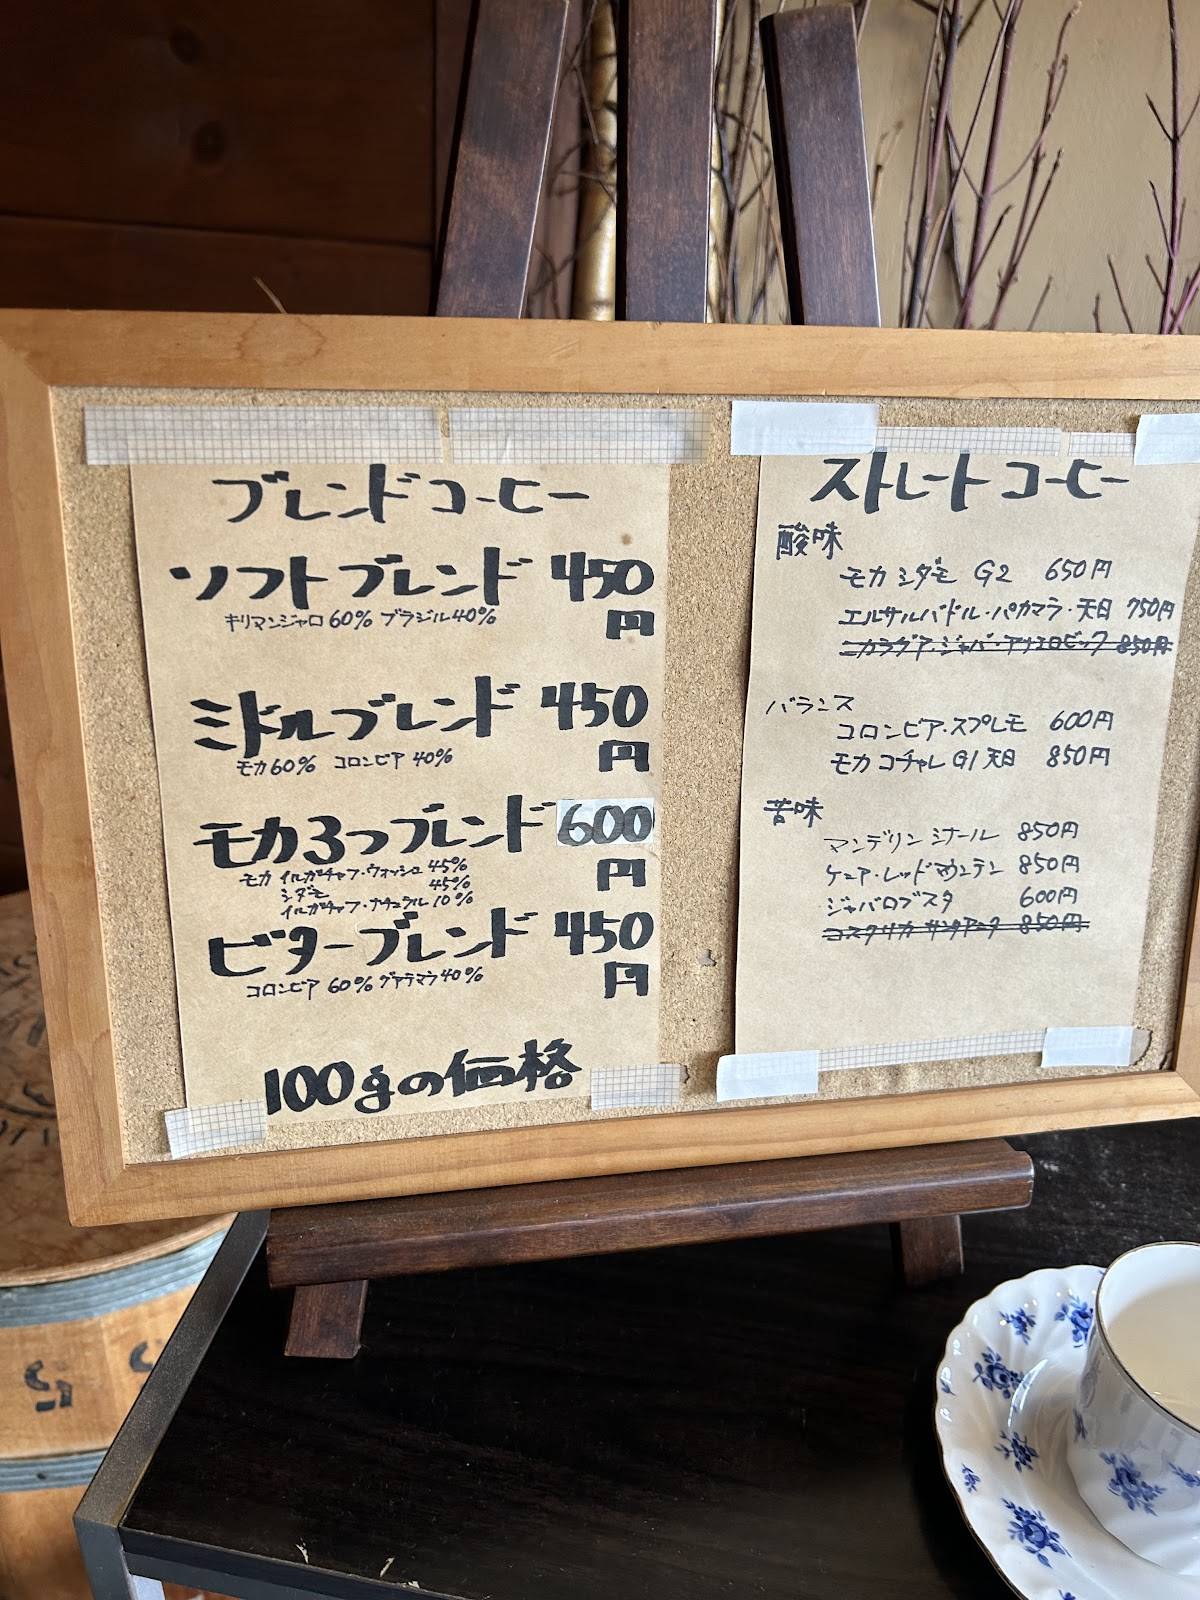 ブレンドコーヒー
ソフトブレンド 450円
キリマンジャロ60% ブラジル40%
ミドルブレンド 450円
モカ60% コロンビア 40%
モカ3つブレンド 600円
モカ イルガチャフ・ウォッシュ 45%
シダモ 45%
イルガチャフ・ナチュラル 10%
ビターブレンド 450円
コロンビア 60% グァテマラ40%
100gの価格
ストレートコーヒー
酸味
モカ シダモ G2 650円
エルサルバドル・パカマラ・天日 750円
ニカラグア・ジャバ・アナエロビック 850円
バランス
コロンビア・スプレモ 600円
モカ コチャレ G1 天日 850円
苦味
マンデリン ミナール 850円
ケニア・レッドマウンテン 850円
ジャバロブスタ 600円
コスタリカ 850円